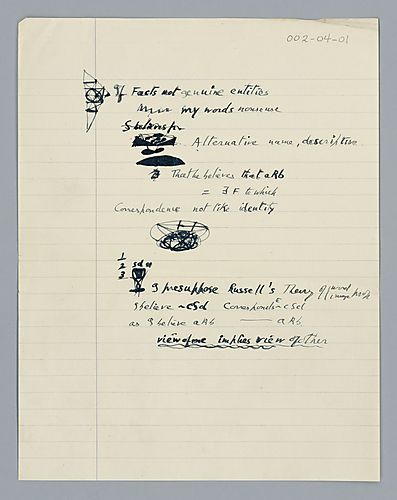 002-04-01
If Facts not genuine entities
my words nonsense
S believes p
Alternative name, descriptive
That he believes that aRb
= ∃ F to which
Correspondence not like identity
1
2 sd a
3
I presuppose Russell's Theory of word image prop
I believe ~cSd Corresponds ~cSd
as I believe aRb —— aRb
view of one implies view of other